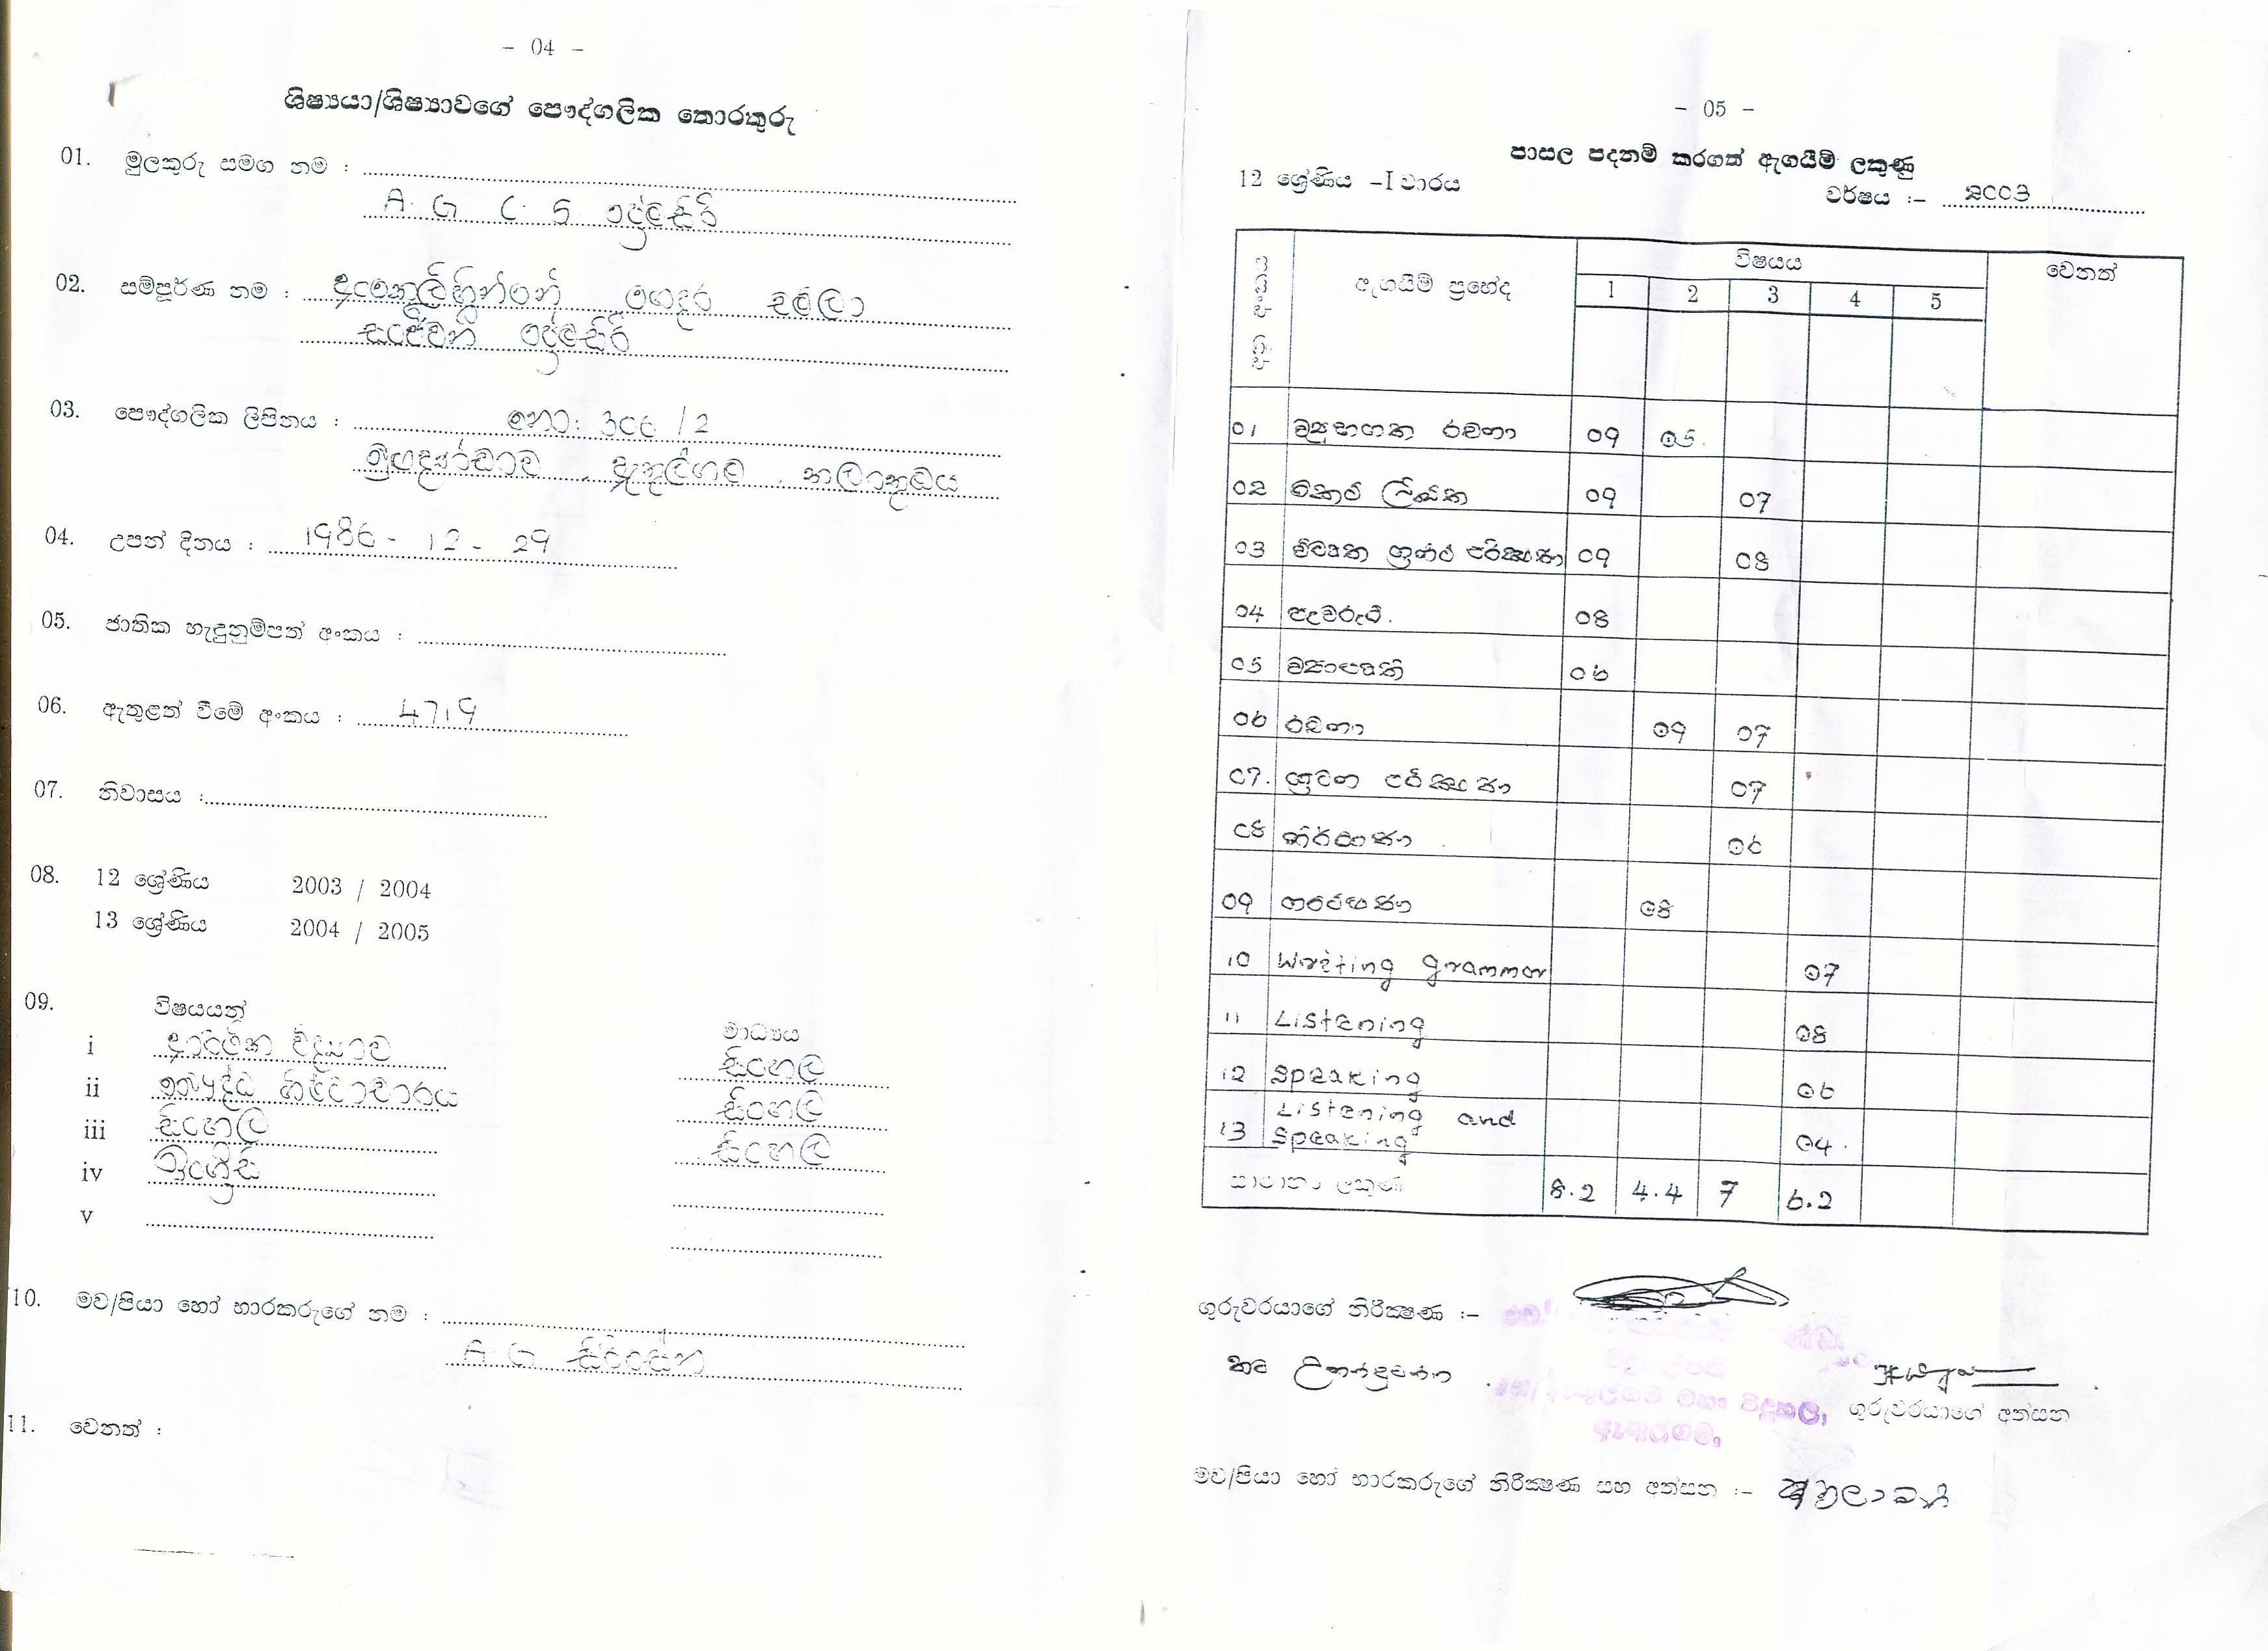 - 04 -
ශිෂ්‍යයා/ශිෂ්‍යාවගේ පෞද්ගලික තොරතුරු
01. මුලකුරු සමග නම :
A. G C. S ප්‍රේමසිරි
02. සම්පූර්ණ නම : ගෙදර චමිලා
සංජීවනී ප්‍රේමසිරි
03. පෞද්ගලික ලිපිනය : නො: 306 /2
ඇතුල්ගම
04. උපන් දිනය : 1986 - 12 - 29
05. ජාතික හැඳුනුම්පත් අංකය :
06. ඇතුළත් වීමේ අංකය : 4719
07. නිවාසය :
08. 12 ශ්‍රේණිය 2003 / 2004
13 ශ්‍රේණිය 2004 / 2005
09. විෂයයන් මාධ්‍යය
i ආර්ථික විද්‍යාව සිංහල
ii බෞද්ධ ශිෂ්ටාචාරය සිංහල
iii සිංහල සිංහල
iv ඉංග්‍රීසි
v
10. මව/පියා හෝ භාරකරුගේ නම :
A. G සිරිසේන
11. වෙනත් :
- 05 -
පාසල පදනම් කරගත් ඇගයීම් ලකුණු
12 ශ්‍රේණිය -I වාරය වර්ෂය :- 2003
අනු අංකය ඇගයීම් ප්‍රභේද විෂයය වෙනත්
1 2 3 4 5
01 ව්‍යුහගත රචනා 09 05
02 කෙටි ලිඛිත 09 07
03 විවෘත ග්‍රන්ථ පරීක්ෂණ 09 08
04 පැවරුම් 08
05 ව්‍යාපෘති 06
06 රචනා 09 07
07. ශ්‍රවන පරීක්ෂණ 07
08 නිර්මාණ 06
09 ගවේෂණ 08
10 Writing grammar 07
11 Listening 08
12 Speaking 06
13 Listening and Speaking 04
සාමාන්‍ය ලකුණු 8.2 4.4 7 6.2
ගුරුවරයාගේ නිරීක්ෂණ :-
තව උනන්දුවන්න
මහා විදුහල,
ගුරුවරයාගේ අත්සන
ඇතුල්ගම,
මව/පියා හෝ භාරකරුගේ නිරීක්ෂණ සහ අත්සන :-